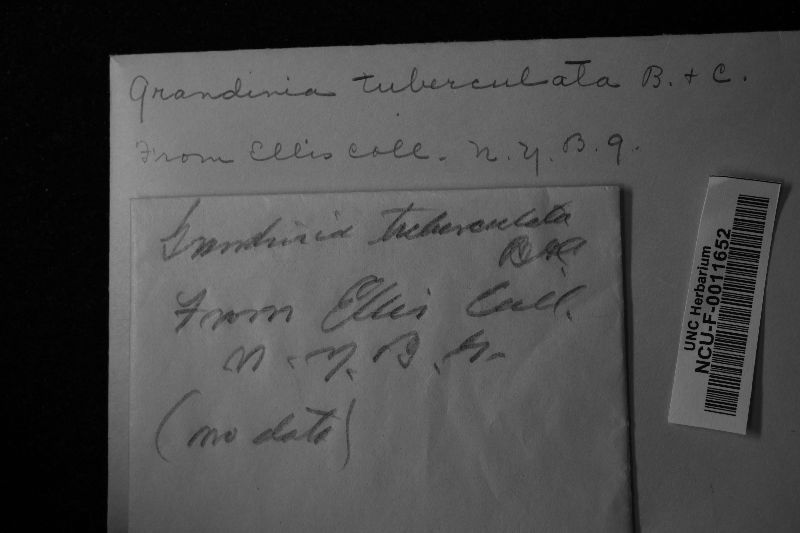 Grandinia tuberculata B. + C.
From Ellis coll. N. Y. B. g.
Grandinia tuberculata
B + C
From Ellis Coll.
N. Y. B. G.
(no data)
UNC Herbarium
NCU-F-0011652